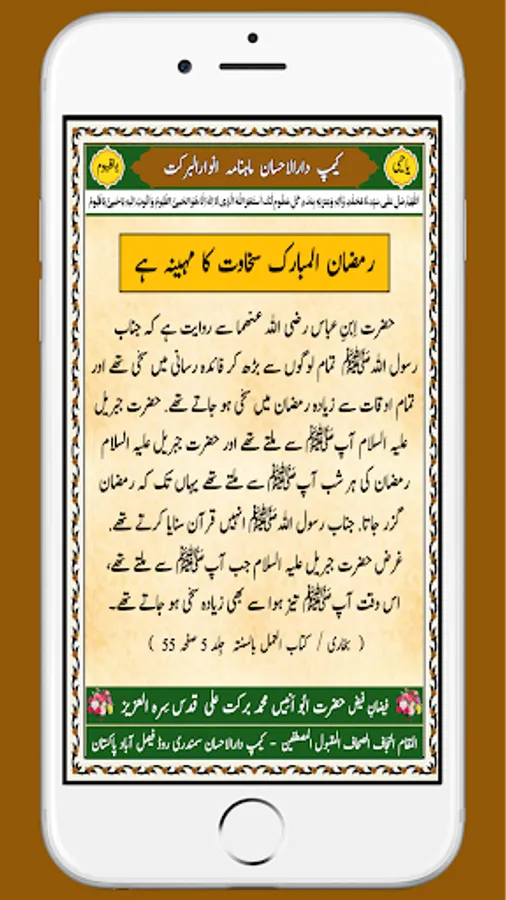 یا حیی
کیمپ دارالاحسان ماہنامہ انوارالبرکت
یا قیوم
رمضان المبارک سخاوت کا مہینہ ہے
حضرت اِبنِ عباس رضی اللہ عنھما سے روایت ہے کہ جناب
رسول اللہ ﷺ تمام لوگوں سے بڑھ کر فائدہ رسانی میں سخی تھے اور
تمام اوقات سے زیادہ رمضان میں سخی ہو جاتے تھے۔ حضرت جبریل
علیہ السلام آپ ﷺ سے ملتے تھے اور حضرت جبریل علیہ السلام
رمضان کی ہر شب آپ ﷺ سے ملتے تھے یہاں تک کہ رمضان
گزر جاتا۔ جناب رسول اللہ ﷺ انہیں قرآن سنایا کرتے تھے۔
غرض حضرت جبریل علیہ السلام جب آپ ﷺ سے ملتے تھے،
اس وقت آپ ﷺ تیز ہوا سے بھی زیادہ سخی ہو جاتے تھے۔
( بخاری / کتاب العمل بالسنتہ جلد 5 صفحہ 55 )
فیضانِ فیض حضرت ابو انیس محمد برکت علی قدس سرہ العزیز
المقام النجاف الصحاف المقبول المصطفین – کیمپ دارالاحسان سمندری روڈ فیصل آباد پاکستان